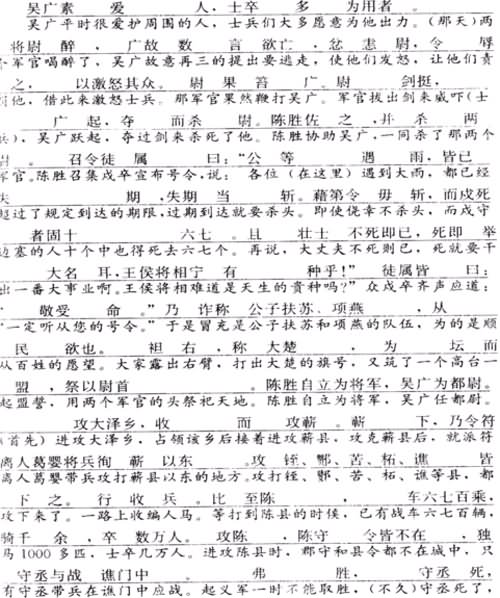 吴广素 爱 人,士卒 多 为用者。
吴广平时很爱护周围的人,士兵们大多愿意为他出力。(那天)两
将尉 醉, 广故 数 言 欲亡, 忿恚尉,令 辱
个军官喝醉了,吴广故意再三的提出要逃走,使他们发怒,让他们责
之, 以激怒其众。 尉 果笞 广。尉 剑挺,
他,借此来激怒士兵。那军官果然鞭打吴广。军官拔出剑来威吓(士
广 起,夺 而杀 尉。陈胜佐 之,并 杀 两
兵),吴广跃起,夺过剑来杀死了他。陈胜协助吴广,一同杀了那两个
尉。 召令徒 属 曰:“公 等 遇 雨,皆已
军官。陈胜召集戍卒宣布号令,说: 各位(在这里)遇到大雨,都已经
失 期,失期 当 斩。藉第令 毋 斩,而戍死
超过了规定到达的期限,过期到达就要杀头。即使侥幸不杀头,而戍守
者固十 六七。且 壮士 不死即已,死即 举
边塞的人十个中也得死去六七个。再说,大丈夫不死则已,死就要干
大名 耳,王侯将相宁 有 种乎!” 徒属皆 曰:
出一番大事业啊。王侯将相难道是天生的贵种吗?”众戍卒齐声应道:
“ 敬受 命。”乃 诈称 公子扶苏、项燕 ,从
“一定听从您的号令。”于是冒充是公子扶苏和项燕的队伍,为的是顺
民 欲也。 袒右 ,称 大楚 , 为 坛 而
从百姓的愿望。大家露出右臂,打出大楚的旗号,又筑了一个高台一
盟 ,祭以尉首 。陈胜自立为将军,吴广为都尉。
起盟誓,用两个军官的头祭祀天地。陈胜自立为将军,吴广任都尉。
攻大泽乡,收 而 攻蕲。蕲 下,乃令符
(首先)进攻大泽乡,占领该乡后接着进攻蕲县,攻克蕲县后,就派符
离人葛婴将兵徇 蕲 以东 。攻 铚、酂、苦、柘、谯 皆
离人葛婴带兵攻打蕲县以东的地方。攻打铚、酂、苦、柘、谯等县,都
下 之。 行 收 兵。比 至陈 , 车六七百乘,
攻下来了。一路上收编人马。等打到陈县的时候,已有战车六七百辆,
骑千 余 ,卒 数万人。 攻陈 ,陈守 令皆不在 ,独
马1000多匹,士卒几万人。进攻陈县时,郡守和县令都不在城中,只
守丞与战 谯门中 。 弗 胜, 守丞 死,
有守丞带兵在谯门中应战。起义军一时不能取胜,(不久)守丞死了,